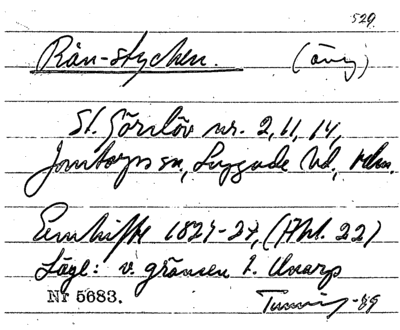 529.
Rån-stycken. (äng)
St. Görslöv nr. 2, 11, 14,
Jonstorps sn, Luggude hd, Mlm.
Enskifte 1827-27, (Akt. 22)
Läge: v. gränsen t.
Nr 5683. -89